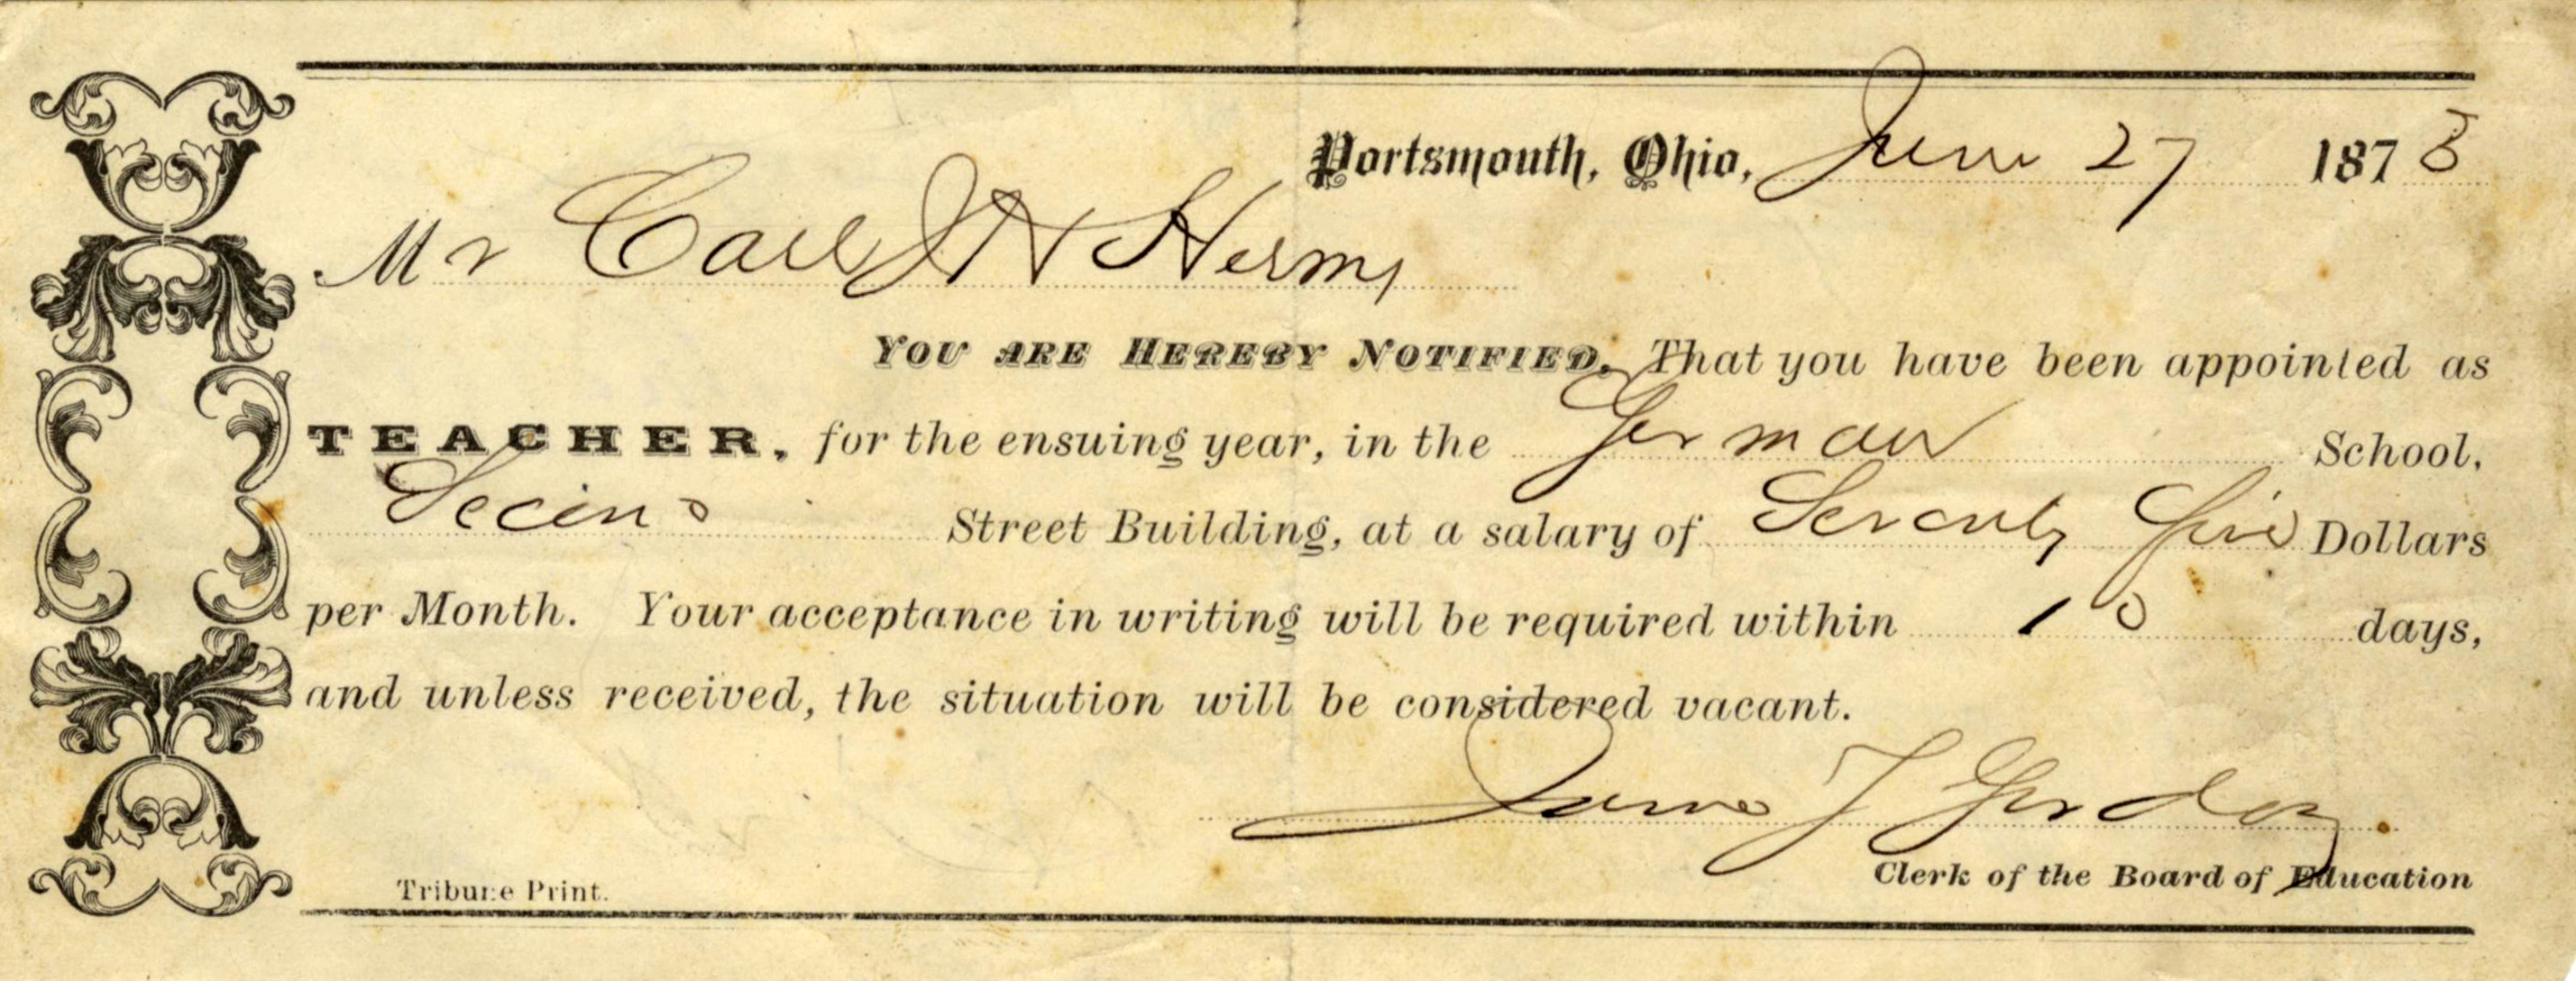 Portsmouth, Ohio, June 27 1873
Mr Carl J H Herms
YOU ARE HEREBY NOTIFIED, That you have been appointed as
TEACHER, for the ensuing year, in the German School,
Second Street Building, at a salary of Seventy five Dollars
per Month. Your acceptance in writing will be required within 10 days,
and unless received, the situation will be considered vacant.
Gorden
Clerk of the Board of Education
Tribune Print.